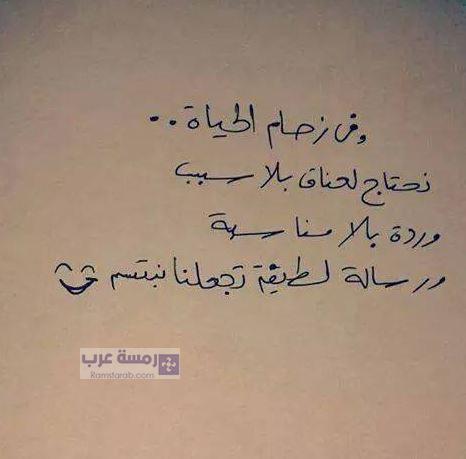 وفي زحام الحياة..
نحتاج لعناق بلا سبب
وردة بلا مناسبة
ورسالة لطيفة تجعلنا نبتسم
رمسة عرب
Ramstarab.com